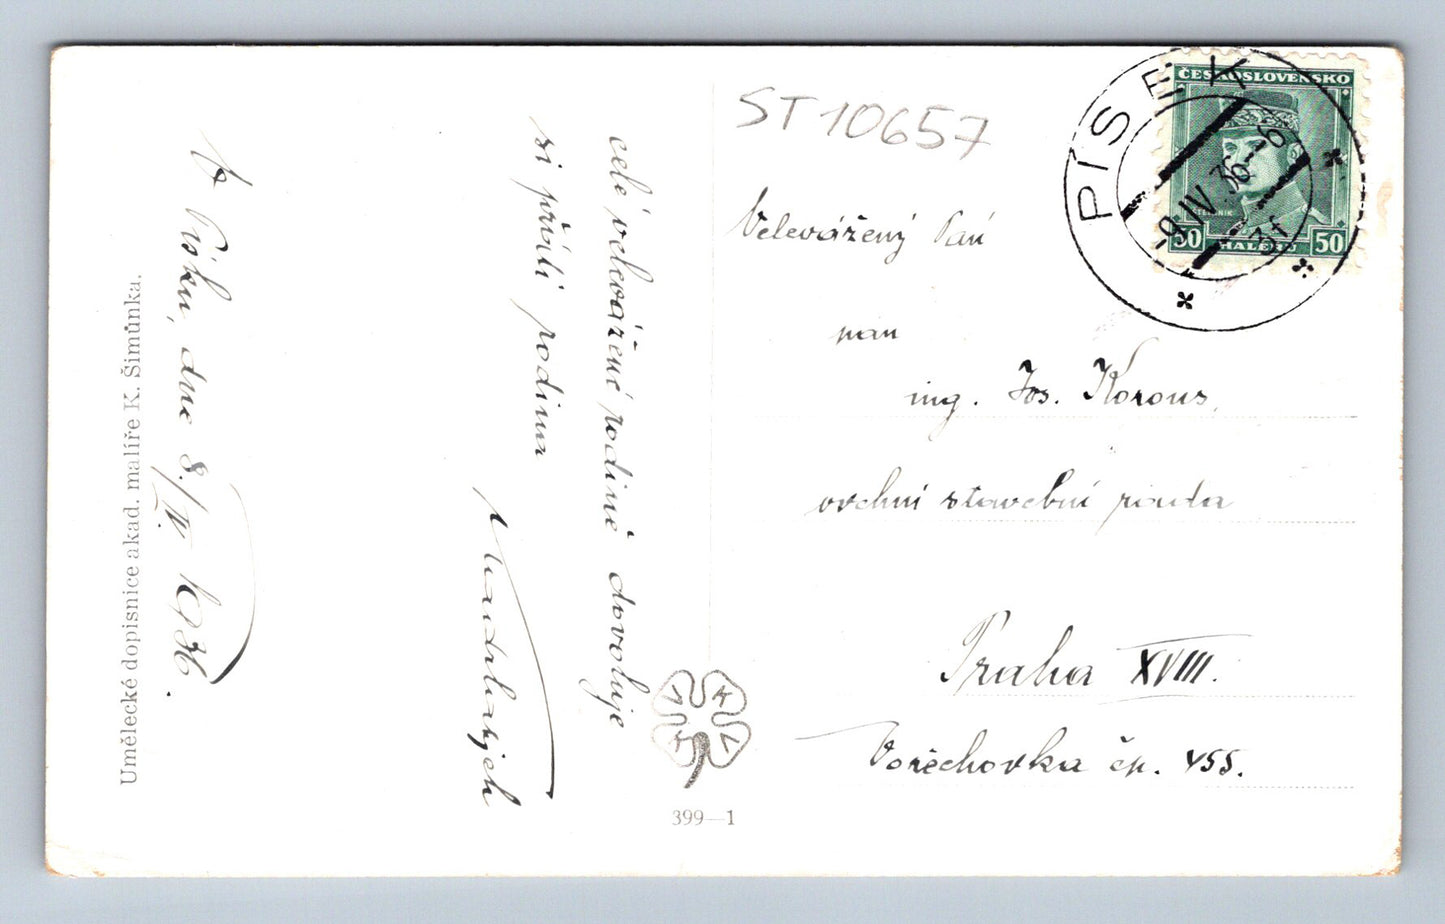 Umělecké dopisnice akad. malíře K. Šimůnka.
V Písku, dne 8./IV. 1936.
celé velevážené rodině dovoluje
si příti rodina
399—1
ST10657
ČESKOSLOVENSKO
ŠTEFÁNIK
50 HALÉŘŮ 50
PÍSEK
-9.IV.36--6
31
Velevážený Pan
pan
ing. Jos. Korous,
vrchní stavební rada
Praha XVIII.
Vořechovka čp. 455.